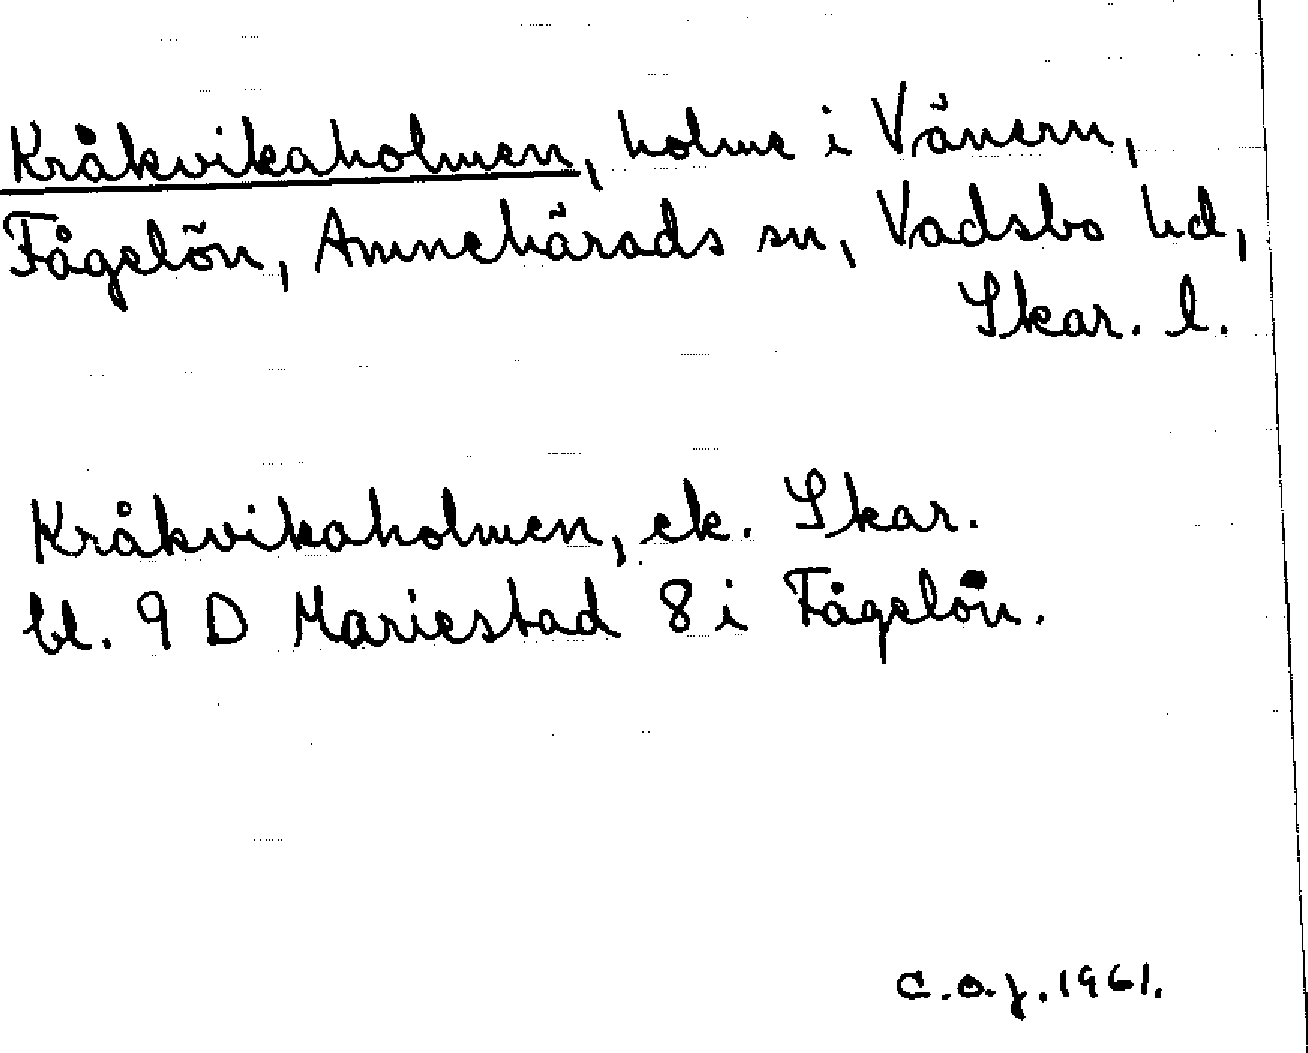 Kråkvikaholmen, holme i Vänern,
Fågelön, Amnehärads sn, Vadsbo hd,
Skar. l.
Kråkvikaholmen, ek. Skar.
bl. 9 D Mariestad 8 i Fågelön.
C.O.J. 1961.